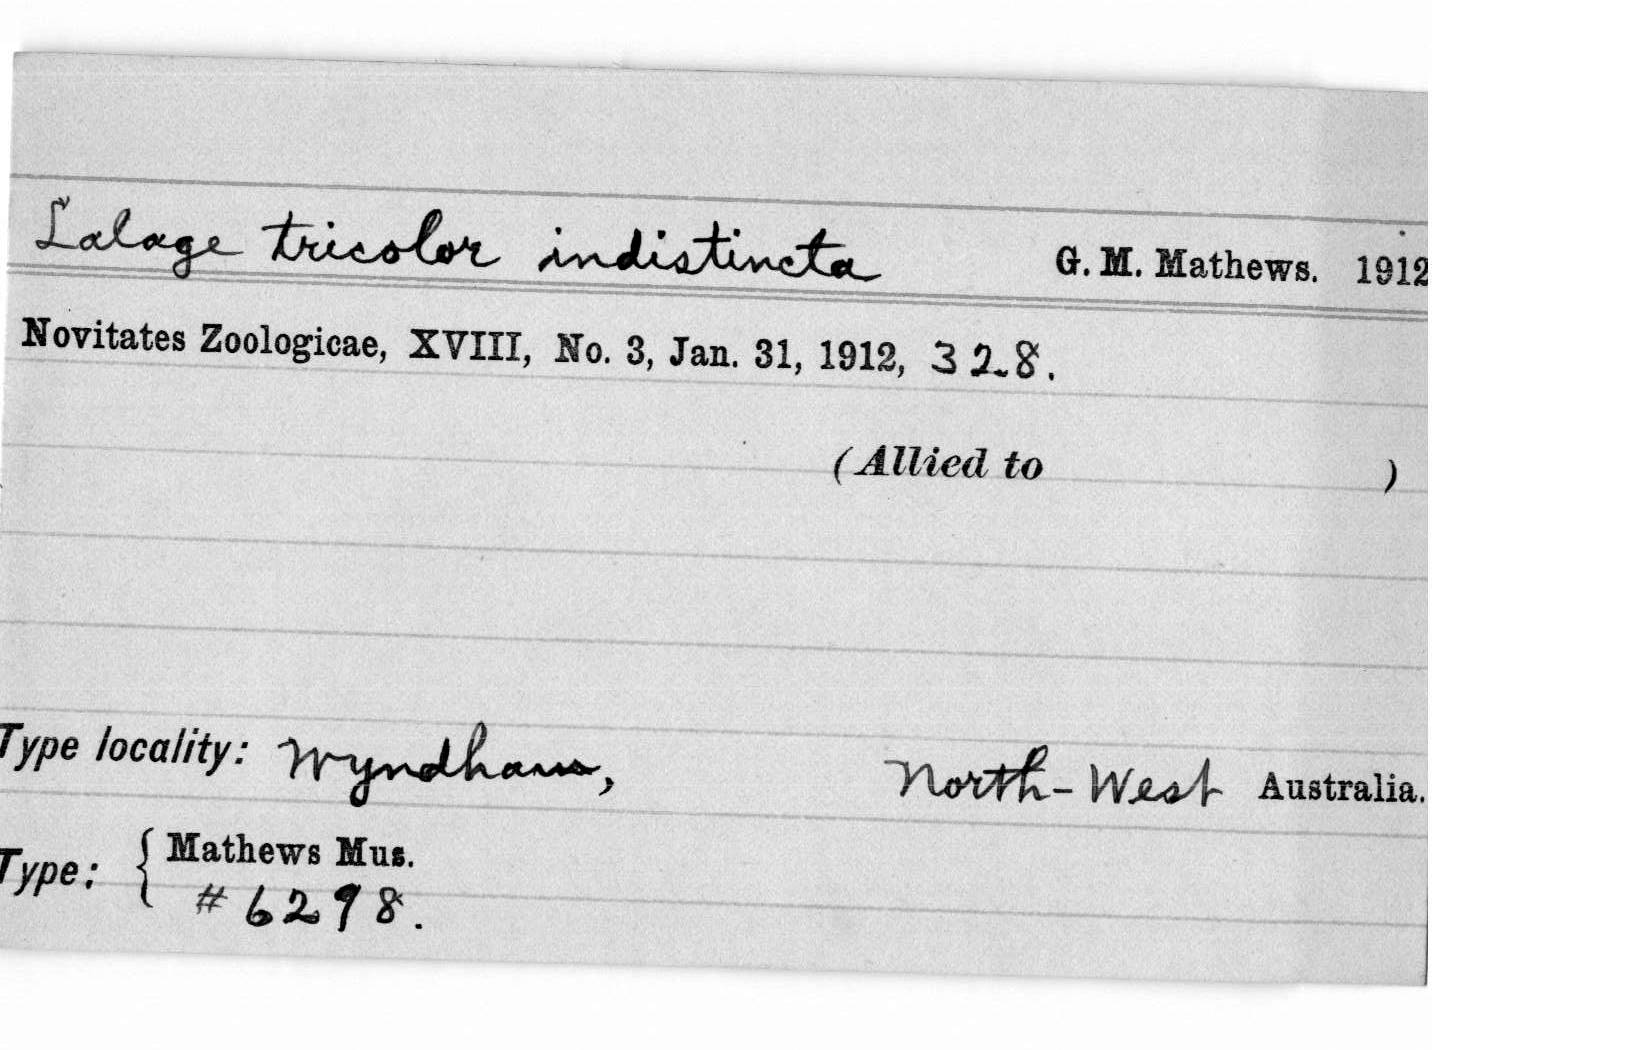 Lalage tricolor indistincta G. M. Mathews. 1912
Novitates Zoologicae, XVIII, No. 3, Jan. 31, 1912, 328.
(Allied to )
Type locality: Wyndham, North-West Australia.
Type: { Mathews Mus.
#6298.